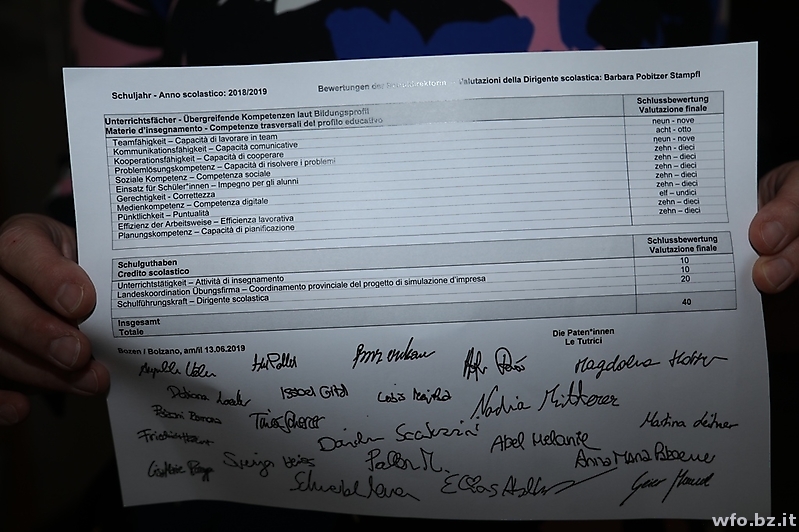 Schuljahr - Anno scolastico: 2018/2019
Bewertungen der Schuldirektorin - Valutazioni della Dirigente scolastica: Barbara Pobitzer Stampfl
Unterrichtsfächer - Übergreifende Kompetenzen laut Bildungsprofil
Materie d'insegnamento - Competenze trasversali del profilo educativo
Schlussbewertung
Valutazione finale
Teamfähigkeit – Capacità di lavorare in team
neun - nove
Kommunikationsfähigkeit – Capacità comunicative
acht - otto
Kooperationsfähigkeit – Capacità di cooperare
neun - nove
Problemlösungskompetenz – Capacità di risolvere i problemi
zehn - dieci
Soziale Kompetenz – Competenza sociale
zehn – dieci
Einsatz für Schüler*innen – Impegno per gli alunni
zehn – dieci
Gerechtigkeit - Correttezza
zehn – dieci
Medienkompetenz – Competenza digitale
zehn – dieci
Pünktlichkeit – Puntualità
elf – undici
Effizienz der Arbeitsweise – Efficienza lavorativa
zehn – dieci
Planungskompetenz – Capacità di pianificazione
zehn – dieci
Schulguthaben
Credito scolastico
Schlussbewertung
Valutazione finale
Unterrichtstätigkeit – Attività di insegnamento
10
Landeskoordination Übungsfirma – Coordinamento provinciale del progetto di simulazione d'impresa
10
Schulführungskraft – Dirigente scolastica
20
Insgesamt
Totale
40
Bozen / Bolzano, am/il 13.06.2019
Die Paten*innen
Le Tutrici
Magdalena
Isabel
Nadia Mitterer
Martina
Abel Melanie
Anna Maria
Pallor M.
Elias
wfo.bz.it